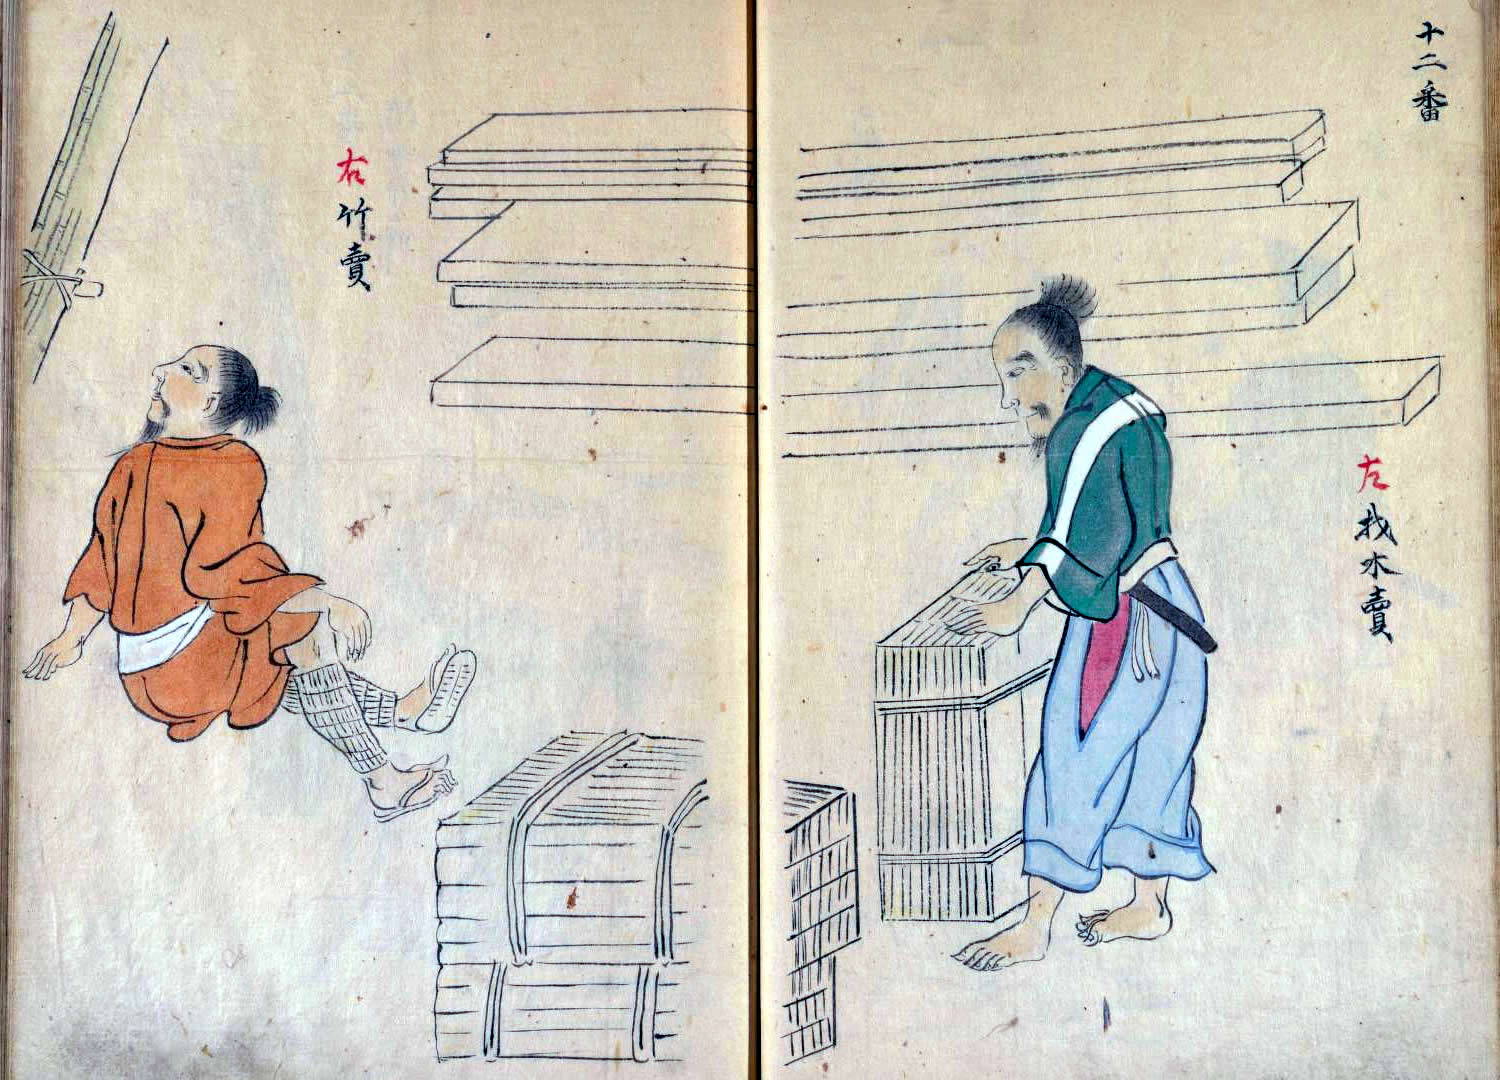 十二番
左 材木賣
右 竹賣